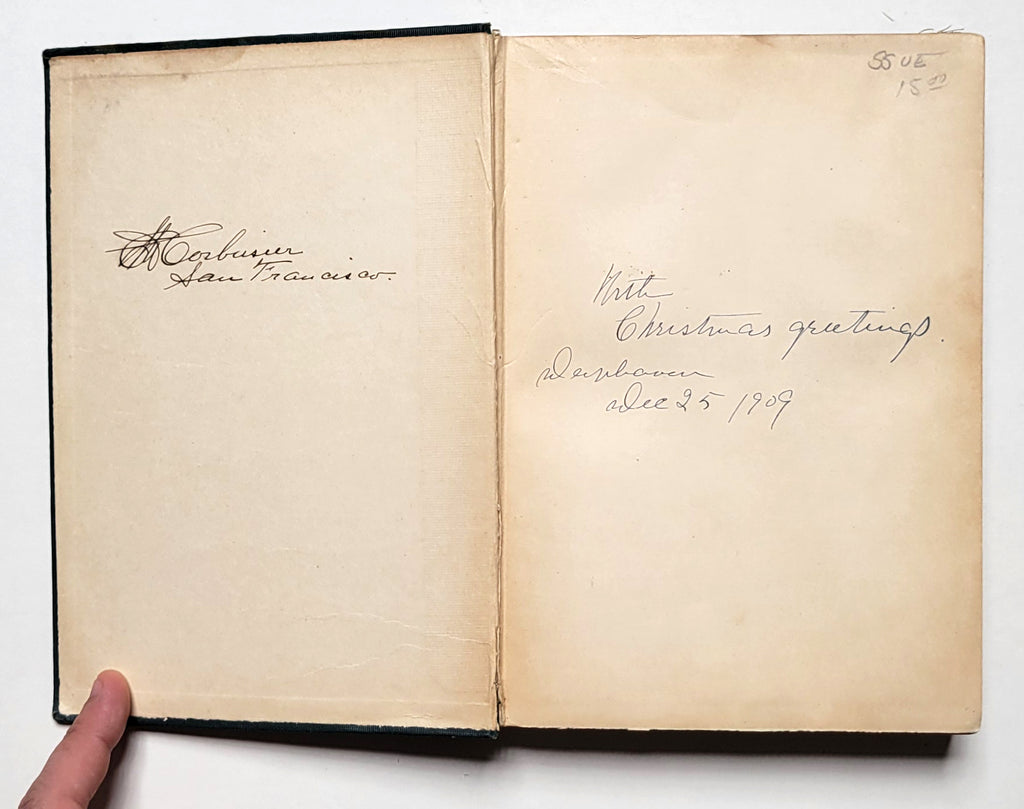 Corbusier
San Francisco.
SSUE
15 00
With
Christmas greetings.
Deephaven
Dec 25 1909